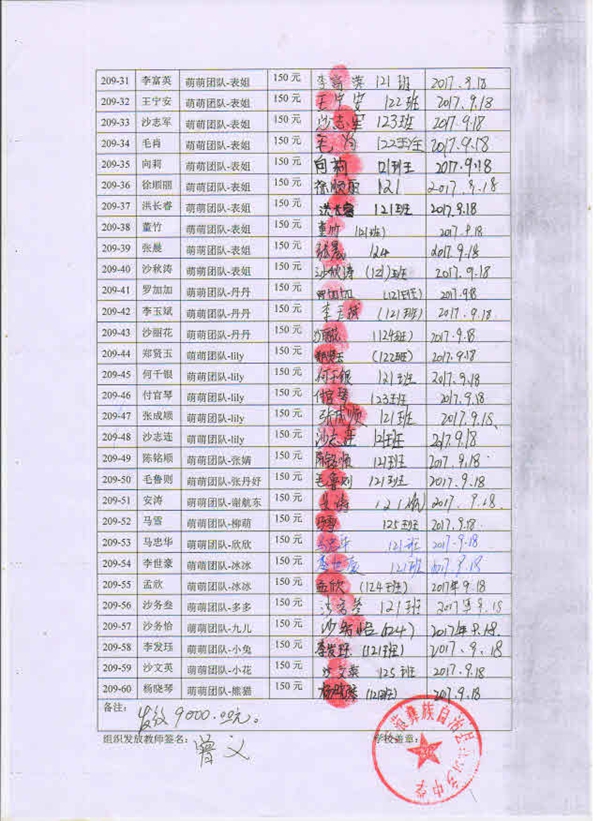 209-31 李富英 萌萌团队-表姐 150 元 李富英 121班 2017.9.18
209-32 王宁安 萌萌团队-表姐 150 元 王宁安 122班 2017.9.18
209-33 沙志军 萌萌团队-表姐 150 元 沙志军 123班 2017.9.18
209-34 毛肖 萌萌团队-表姐 150 元 毛肖 122班 2017.9.18
209-35 向莉 萌萌团队-表姐 150 元 向莉 121班 2017.9.18
209-36 徐顺丽 萌萌团队-表姐 150 元 徐顺丽 121 2017.9.18
209-37 洪长睿 萌萌团队-表姐 150 元 洪长睿 121班 2017.9.18
209-38 董竹 萌萌团队-表姐 150 元 董竹 (121班) 2017.9.18
209-39 张晨 萌萌团队-表姐 150 元 张晨 124 2017.9.18
209-40 沙秋涛 萌萌团队-表姐 150 元 沙秋涛 (121)班 2017.9.18
209-41 罗加加 萌萌团队-丹丹 150 元 罗加加 (121班) 2017.9.8
209-42 李玉斌 萌萌团队-丹丹 150 元 李玉斌 (121班) 2017.9.18
209-43 沙丽花 萌萌团队-丹丹 150 元 (124班) 2017.9.18
209-44 郑贤玉 萌萌团队-lily 150 元 郑贤玉 (122班) 2017.9.18
209-45 何千银 萌萌团队-lily 150 元 何千银 121班 2017.9.18
209-46 付官琴 萌萌团队-lily 150 元 付官琴 123班 2017.9.18
209-47 张成顺 萌萌团队-lily 150 元 张成顺 121班 2017.9.18
209-48 沙志连 萌萌团队-lily 150 元 沙志连 121班 2017.9.18
209-49 陈铭顺 萌萌团队-张婻 150 元 陈铭顺 121班 2017.9.18
209-50 毛鲁则 萌萌团队-张丹妤 150 元 毛鲁则 121班 2017.9.18
209-51 安涛 萌萌团队-谢航东 150 元 安涛 2017.9.18
209-52 马雪 萌萌团队-柳萌 150 元 马雪 125班 2017.9.18
209-53 马忠华 萌萌团队-欣欣 150 元 马忠华 121班 2017.9.18
209-54 李世豪 萌萌团队-冰冰 150 元 李世豪 121班 2017.9.18
209-55 孟欣 萌萌团队-冰冰 150 元 孟欣 (124班) 2017年9.18
209-56 沙务叁 萌萌团队-多多 150 元 沙务叁 121班 2017年9.18
209-57 沙务恰 萌萌团队-九儿 150 元 沙务恰 (124) 2017年9.18
209-58 李发珏 萌萌团队-小兔 150 元 李发珏 (121班) 2017.9.18
209-59 沙文英 萌萌团队-小花 150 元 沙文英 125班 2017.9.18
209-60 杨晓琴 萌萌团队-熊猫 150 元 杨晓琴 (121班) 2017.9.18
备注: 发放9000.00元。
组织发放教师签名: 曾义 学校盖章:
彝族自治 乡中学